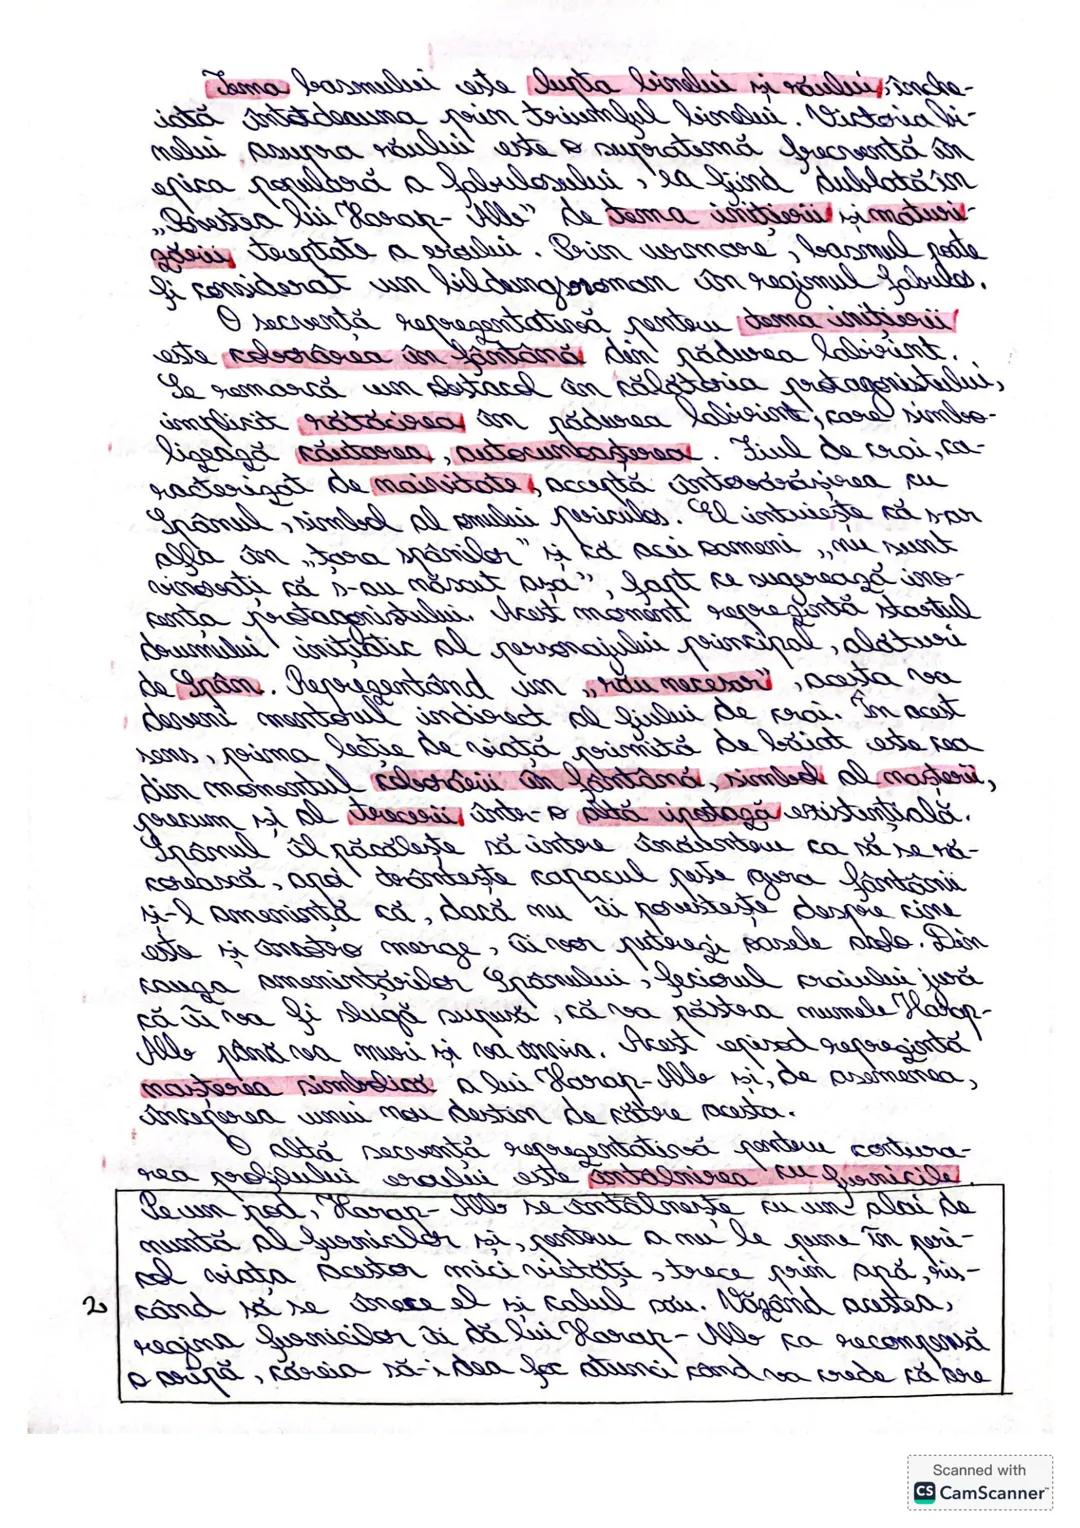 Tema basmului este lupta binelui și răului, înche-
iată întotdeauna prin triumful binelui. Victoria bi-
nelui asupra răului este o supratemă frecventă în
epica populară a fabulosului, ea fiind dublată în
„Povestea lui Harap-Alb" de tema inițierii și maturi-
zării treptate a eroului. Prin urmare, basmul poate
fi considerat un bildungsroman în regimul fabulos.
O secvență reprezentativă pentru tema inițierii
este coborârea în fântână din pădurea labirint.
Se remarcă un obstacol în călătoria protagonistului,
implicit rătăcirea în pădurea labirint, care simbo-
lizează căutarea, autocunoașterea. Fiul de crai, ca-
racterizat de naivitate, acceptă întovărășirea cu
Spânul, simbol al omului periculos. El intuiește că s-ar
afla în „țara spânilor" și că acei oameni „nu sunt
vinovați că s-au născut așa", fapt ce sugerează ino-
cența protagonistului. Acest moment reprezintă startul
drumului inițiatic al personajului principal, alături
de Spân. Reprezentând un „rău necesar", acesta va
deveni mentorul indirect al fiului de crai. În acest
sens, prima lecție de viață primită de băiat este cea
din momentul coborârii în fântână, simbol al nașterii,
precum și al trecerii într-o altă ipostază existențială.
Spânul îl păcălește să intre înăuntru ca să se ră-
corească, apoi trântește capacul peste gura fântânii
și-l amenință că, dacă nu îi povestește despre cine
este și încotro merge, îi vor putrezi oasele acolo. Din
cauza amenințărilor Spânului, feciorul craiului jură
că îi va fi slugă supusă, că va păstra numele Harap-
Alb până va muri și va învia. Acest episod reprezintă
nașterea simbolică a lui Harap-Alb și, de asemenea,
începerea unui nou destin de către acesta.
O altă secvență reprezentativă pentru contura-
rea profilului eroului este întâlnirea cu furnicile.
Pe un pod, Harap-Alb se întâlnește cu un alai de
nuntă al furnicilor și, pentru a nu le pune în peri-
col viața acestor mici vietăți, trece prin apă, ris-
2 când să se înece el și calul său. Văzând acestea,
regina furnicilor îi dă lui Harap-Alb ca recompensă
o aripă, căreia să-i dea foc atunci când va crede că are
Scanned with
CS CamScanner